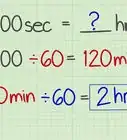 00sec = ? h
00 ÷60= 120m
0min ÷60 = 2 hr